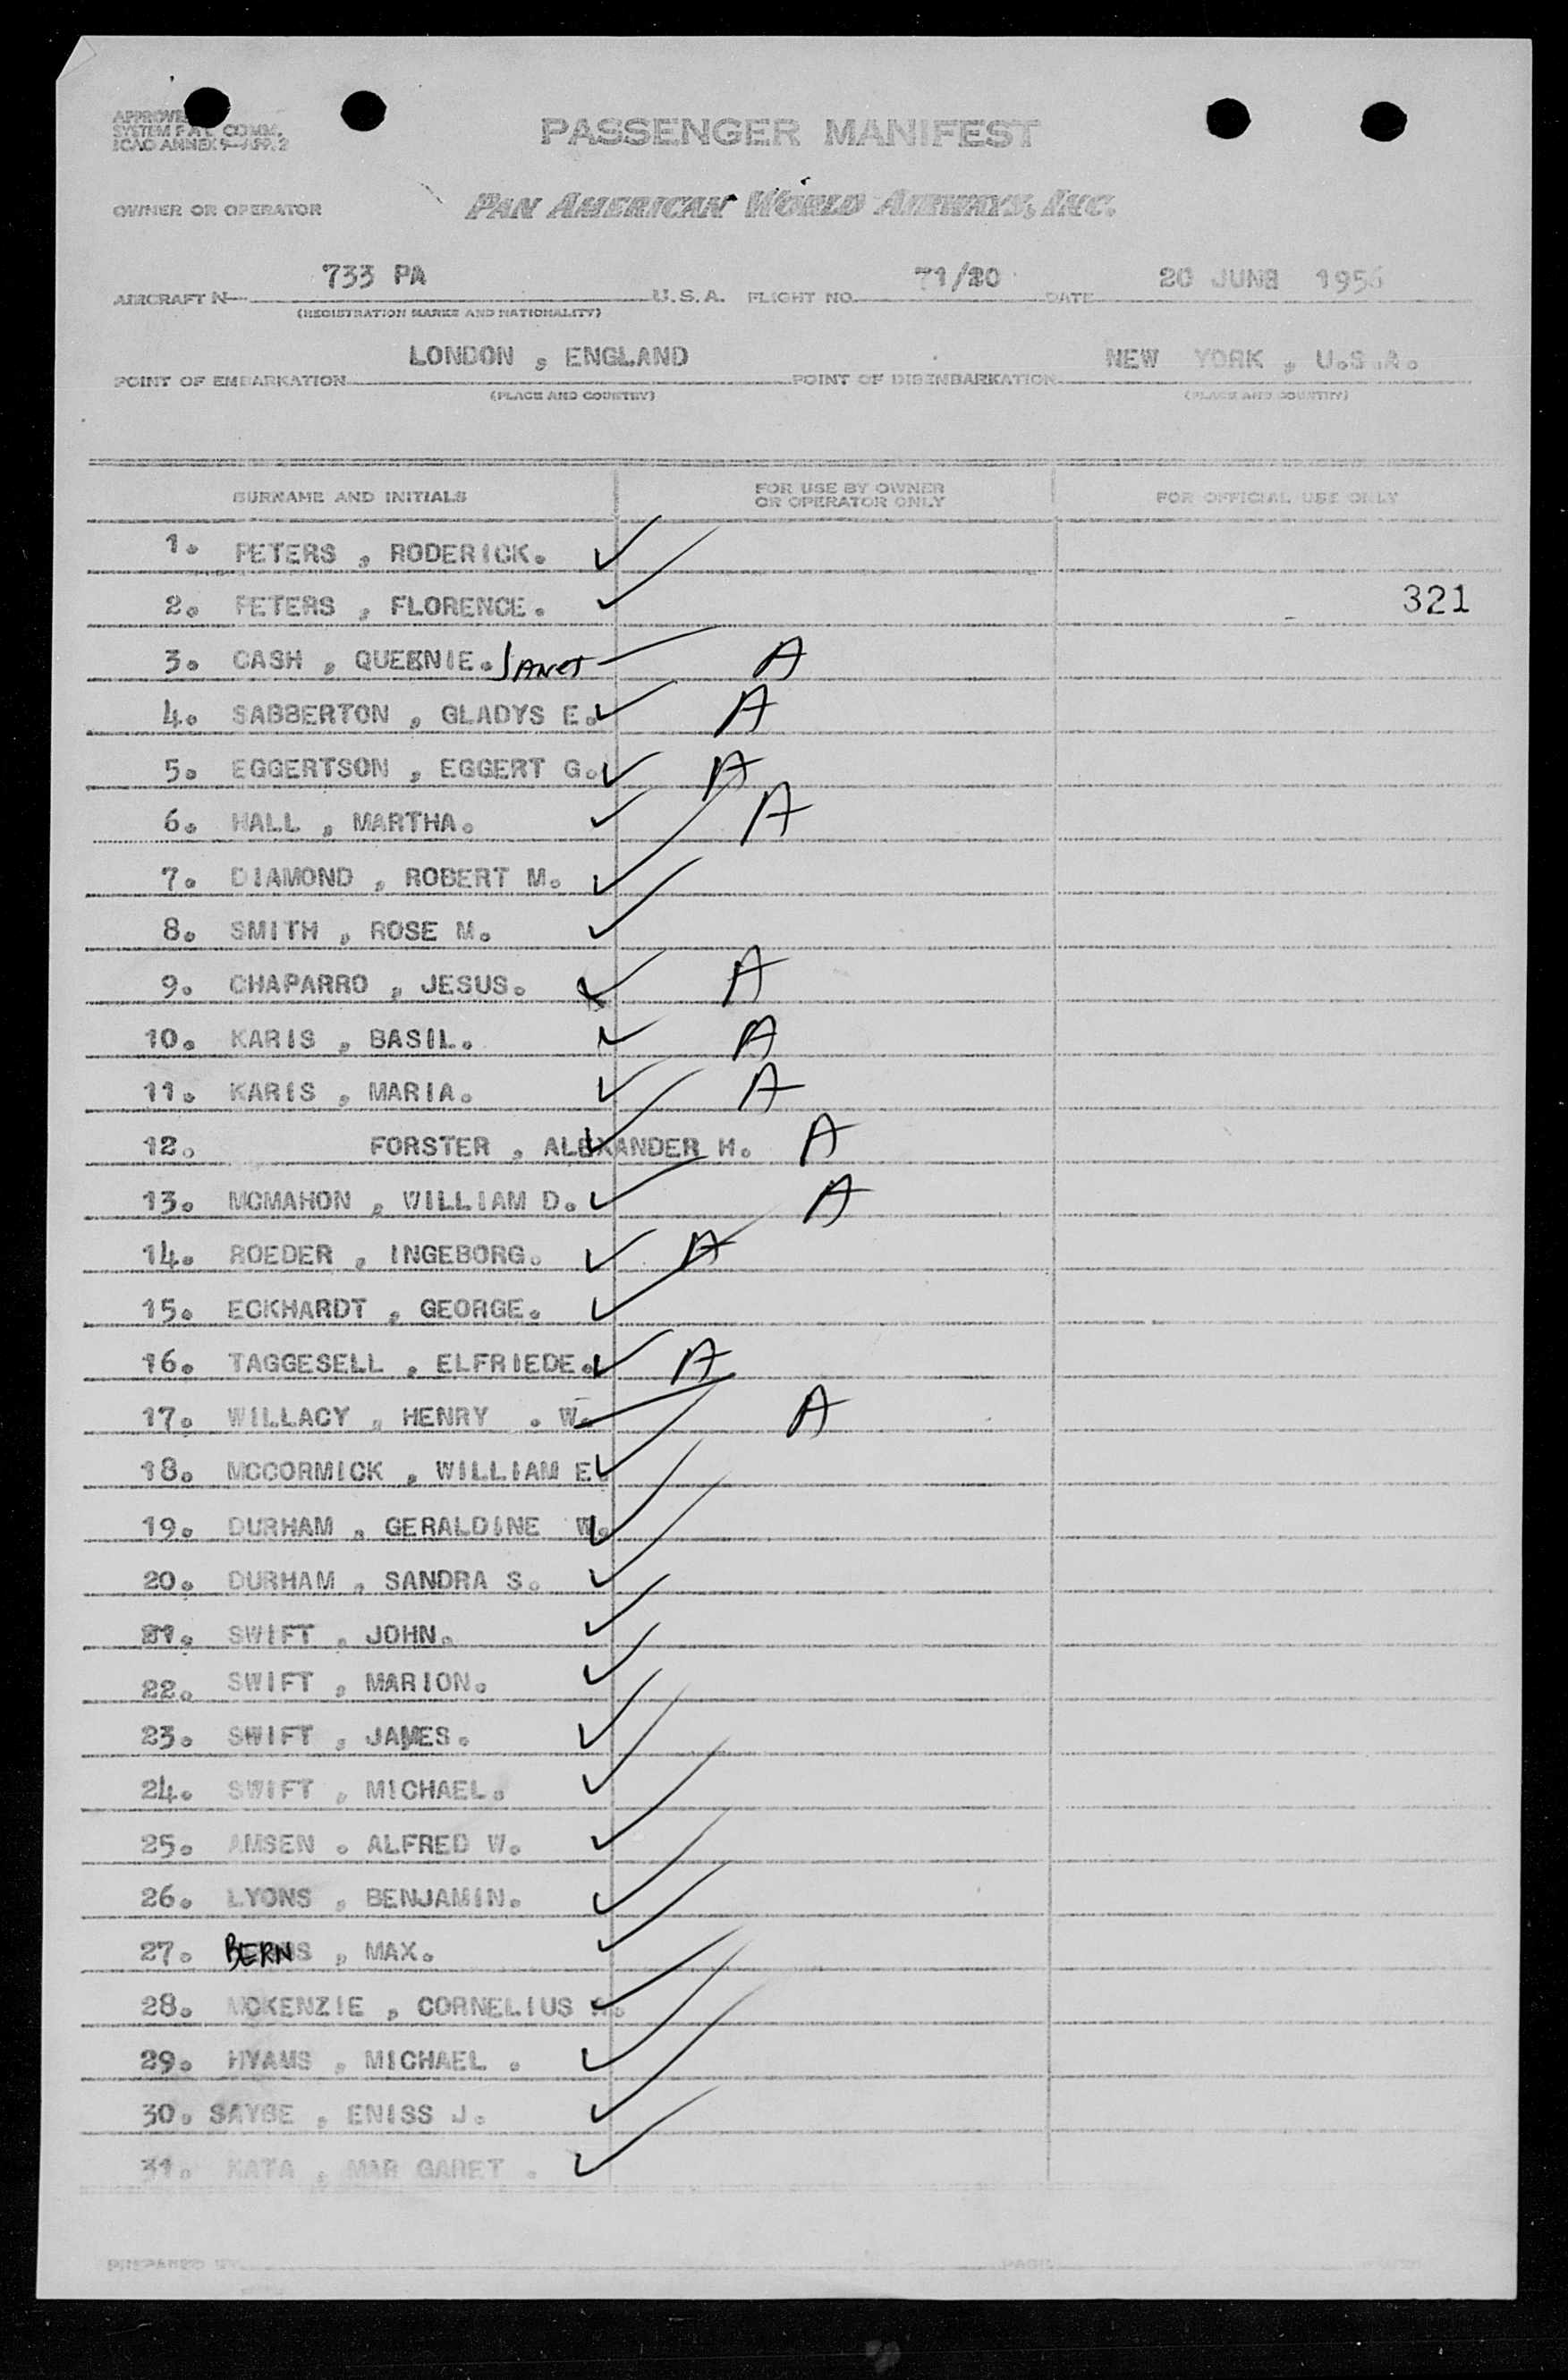 SYSTEM F A L COMM.
ICAO ANNEX 9-APP. 2
PASSENGER MANIFEST
OWNER OR OPERATOR PAN AMERICAN WORLD AIRWAYS, INC.
AIRCRAFT N 733 PA U.S.A. FLIGHT NO. 71/20 DATE 20 JUNE 1956
(REGISTRATION MARKS AND NATIONALITY)
POINT OF EMBARKATION LONDON , ENGLAND POINT OF DISEMBARKATION NEW YORK , U.S.A.
(PLACE AND COUNTRY) (PLACE AND COUNTRY)
SURNAME AND INITIALS FOR USE BY OWNER OR OPERATOR ONLY FOR OFFICIAL USE ONLY
1. PETERS , RODERICK. ✓
2. PETERS , FLORENCE. ✓ 321
3. CASH , QUEENIE. JANET A
4. SABBERTON , GLADYS E. ✓ A
5. EGGERTSON , EGGERT G. ✓ A
6. HALL , MARTHA. ✓ A
7. DIAMOND , ROBERT M. ✓
8. SMITH , ROSE M. ✓
9. CHAPARRO , JESUS. ✓ A
10. KARIS , BASIL. ✓ A
11. KARIS , MARIA. ✓ A
12. FORSTER , ALEXANDER H. ✓ A
13. MCMAHON , WILLIAM D. ✓ A
14. ROEDER , INGEBORG. ✓ A
15. ECKHARDT , GEORGE. ✓
16. TAGGESELL , ELFRIEDE. ✓ A
17. WILLACY , HENRY . W. A
18. MCCORMICK , WILLIAM E. ✓
19. DURHAM , GERALDINE W. ✓
20. DURHAM , SANDRA S. ✓
21. SWIFT , JOHN. ✓
22. SWIFT , MARION. ✓
23. SWIFT , JAMES. ✓
24. SWIFT , MICHAEL. ✓
25. AMSEN . ALFRED W. ✓
26. LYONS , BENJAMIN. ✓
27. BERNS , MAX. ✓
28. MCKENZIE , CORNELIUS ✓
29. HYAMS , MICHAEL . ✓
30. SAYGE , ENISS J. ✓
31. KATA , MAR GARET . ✓
PREPARED BY PAGE